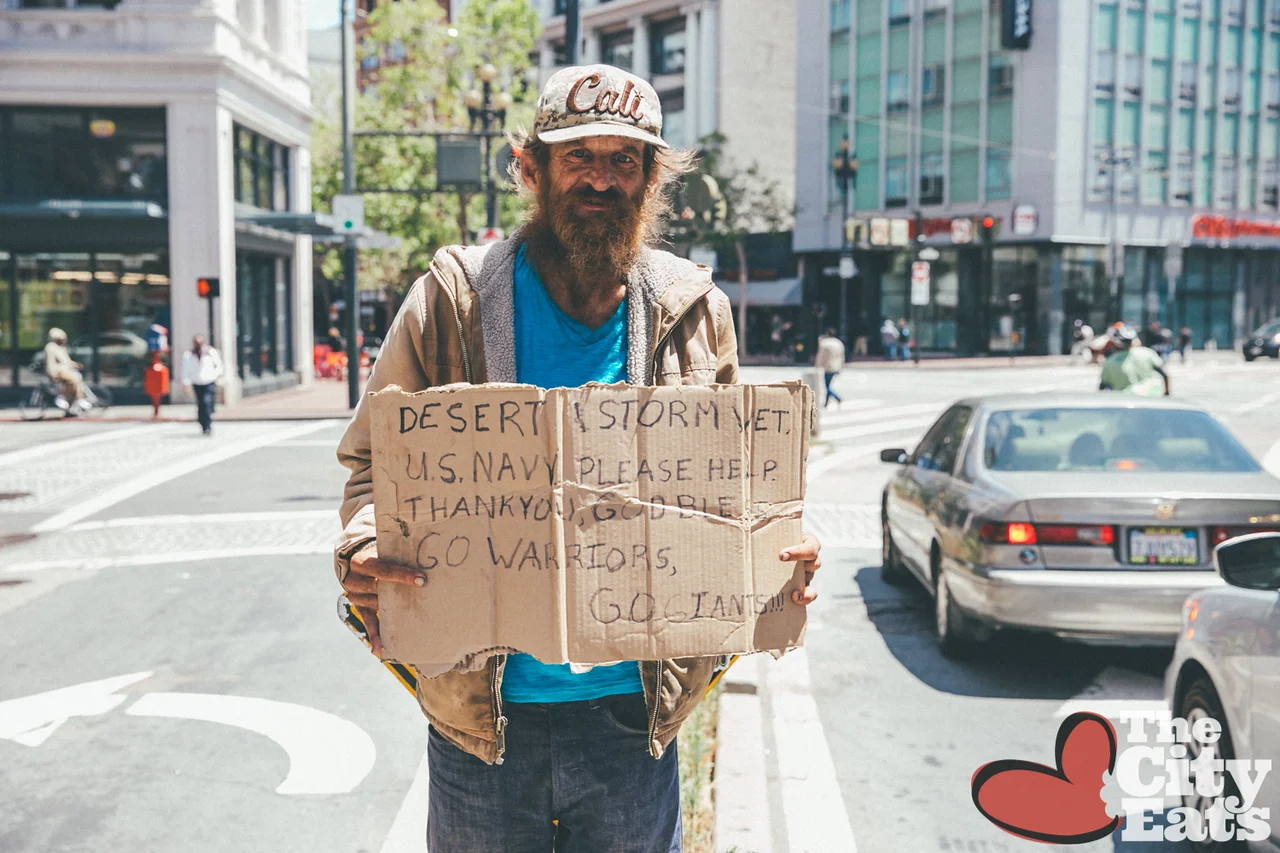 Cali
DESERT STORM VET.
U.S. NAVY PLEASE HELP.
THANKYOU, GOD BLESS
GO WARRIORS,
GO GIANTS!!!
The
City
Eats